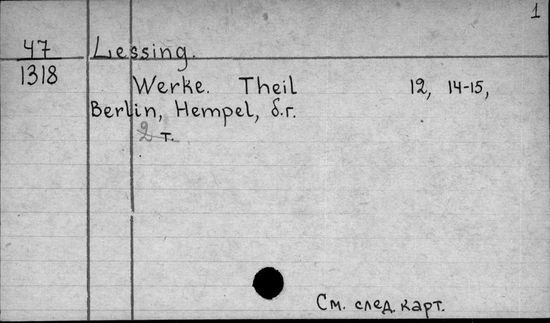 1
47
1318
Lessing.
Werke. Theil 12, 14-15,
Berlin, Hempel, б.г.
2 т.
См. след. карт.